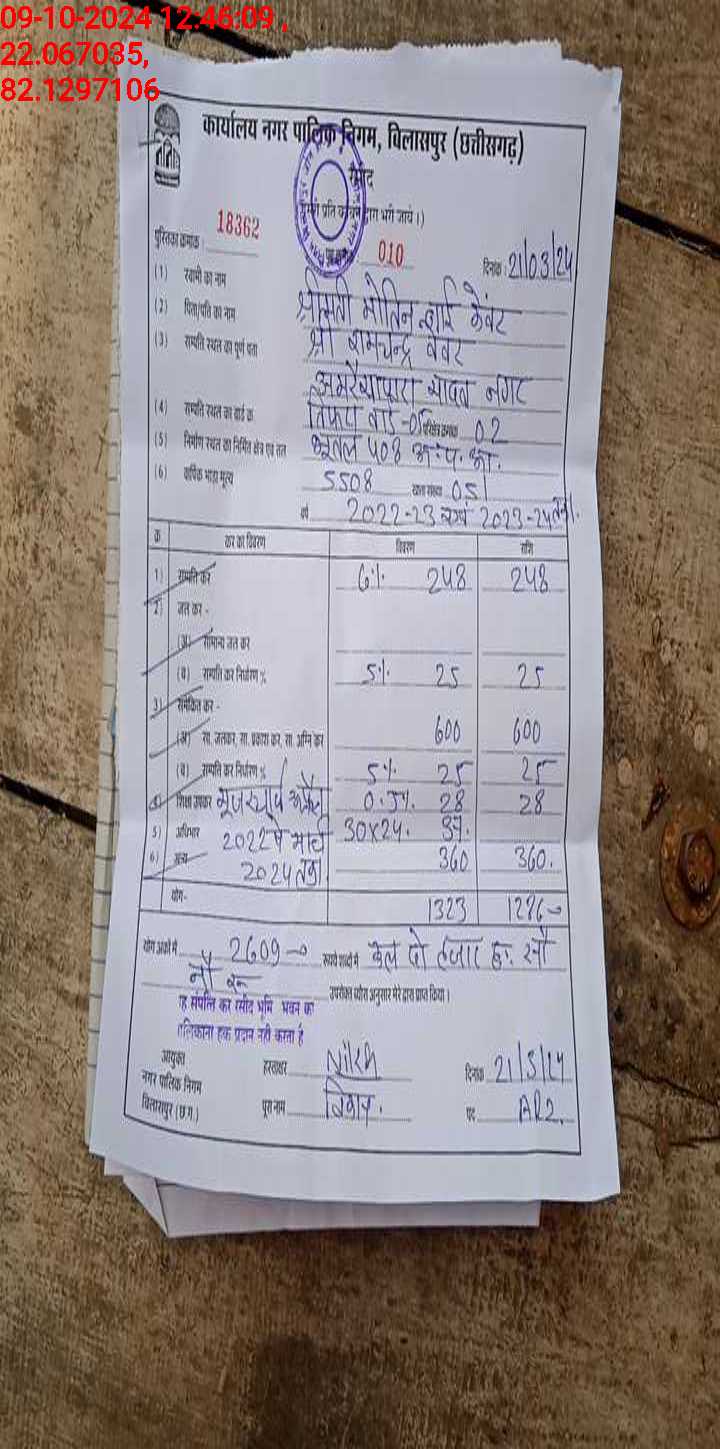 09-10-2024 12:46:09 ,
22.067035,
82.1297106
कार्यालय नगर पालिक निगम, बिलासपुर (छत्तीसगढ़)
रसीद
प्रति कार्बन द्वारा भरी जाये।)
पुस्तिका क्रमांक : 18362 010 दिनांक : 21/03/24
(1) स्वामी का नाम श्रीमती मोतिन बाई केंवट
(2) पिता/पति का नाम श्री रामचन्द्र केवट
(3) सम्पत्ति स्थल का पूर्ण पता अमरैय्यापारा यादव नगर
(4) सम्पत्ति स्थल का वार्ड क्र. तिफरा वार्ड-05 परिक्षेत्र क्रमांक 02
(5) निर्माण स्थल का निर्मित क्षेत्र एवं तल भूतल 408
(6) वार्षिक भाड़ा मूल्य 5508 051
वर्ष 2022-23 एवं 2023-24 तक।
क्र कर का विवरण विवरण राशि
1) सम्पत्ति कर 6% 248 248
2) जल कर -
(अ) सामान्य जल कर
(ब) सम्पत्ति कर निर्धारण % 5% 25 25
3) समेकित कर -
(अ) सा. जलकर, सा. प्रकाश कर, सा. अग्नि कर 600 600
(ब) सम्पत्ति कर निर्धारण % 5% 25 25
4) शिक्षा उपकर 0.5% 28 28
5) अधिभार 2022 से मार्च 30x24. 37.
6) अन्य 2024 तक 360 360.
योग- 1323 1286
योग अंकों में 2609 रूपये शब्दों में कुल दो हजार छः सौ
नौ रू उपरोक्त ब्योरा अनुसार मेरे द्वारा प्राप्त किया।
यह संपत्ति कर रसीद भूमि भवन का
मालिकाना हक प्रदान नहीं करता है
आयुक्त हस्ताक्षर दिनांक 21/3/24
नगर पालिक निगम
बिलासपुर (छ.ग.) पूरा नाम पद AR2.